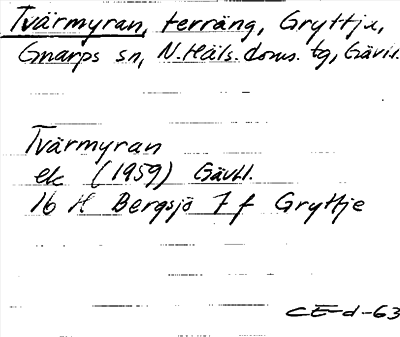 Tvärmyran, terräng, Gryttje,
Gnarps sn, N. Häls. doms. tg, Gävl.
Tvärmyran
ek (1959) Gävl.
16 H Bergsjö 7 f Gryttje
CE-d-63